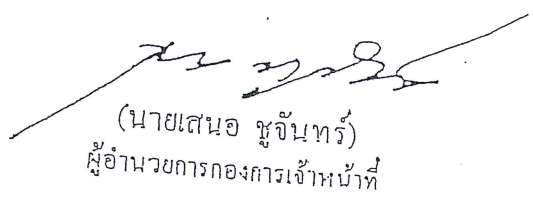 (นายเสนอ ชูจันทร์)
ผู้อำนวยการกองการเจ้าหน้าที่